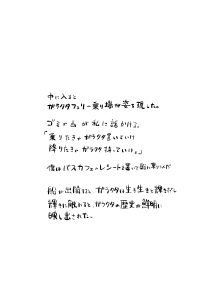 中に入ると
ガラクタフェリー乗り場が姿を現した。
ゴミの山が私に話かける。
「乗りたきゃガラクタ置いていけ
降りたきゃガラクタ持っていけ。」
僕はバスカフェのレシートを置いて船に乗りこんだ
船が出航すると ガラクタは生き生きと
輝きに触れると、ガラクタの歴史が鮮明に
映し出された。